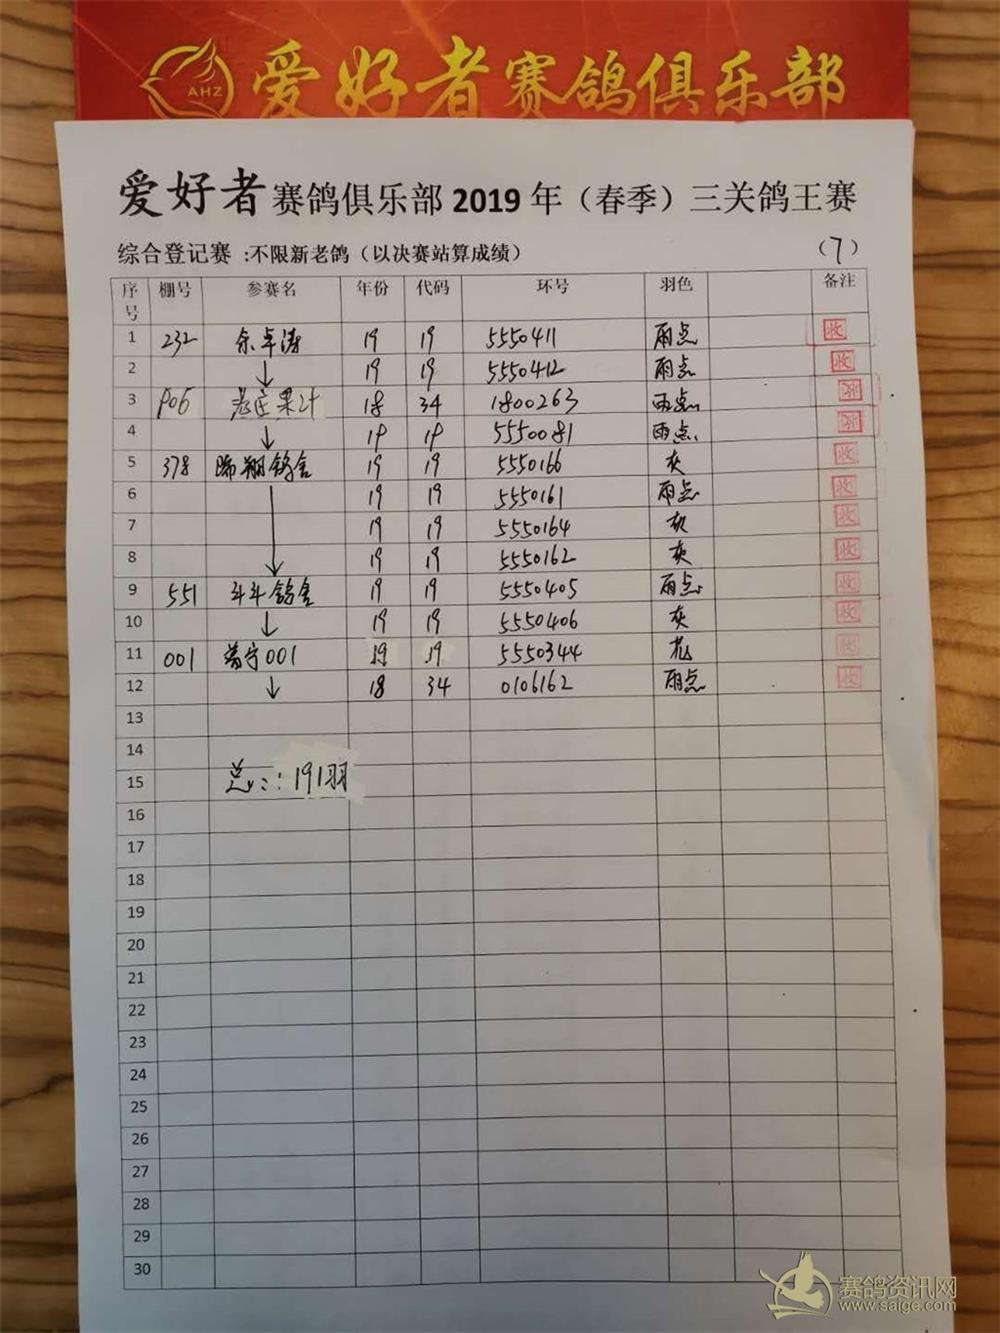 AHZ 爱好者赛鸽俱乐部
爱好者赛鸽俱乐部 2019 年（春季）三关鸽王赛
综合登记赛 :不限新老鸽（以决赛站算成绩） （7）
序号 棚号 参赛名 年份 代码 环号 羽色 备注
1 232 余卓涛 19 19 5550411 雨点 收
2 ↓ 19 19 5550412 雨点 收
3 P06 果汁 18 34 1800263 雨点 收
4 ↓ 19 19 5550081 雨点 收
5 378 翔鸽舍 19 19 5550166 灰 收
6 19 19 5550161 雨点 收
7 19 19 5550164 灰 收
8 ↓ 19 19 5550162 灰 收
9 551 斗斗鸽舍 19 19 5550405 雨点 收
10 ↓ 19 19 5550406 灰 收
11 001 001 19 19 5550344 花 收
12 ↓ 18 34 0106162 雨点 收
13
14
15 总:191羽
16
17
18
19
20
21
22
23
24
25
26
27
28
29
30
赛鸽资讯网
www.saige.com